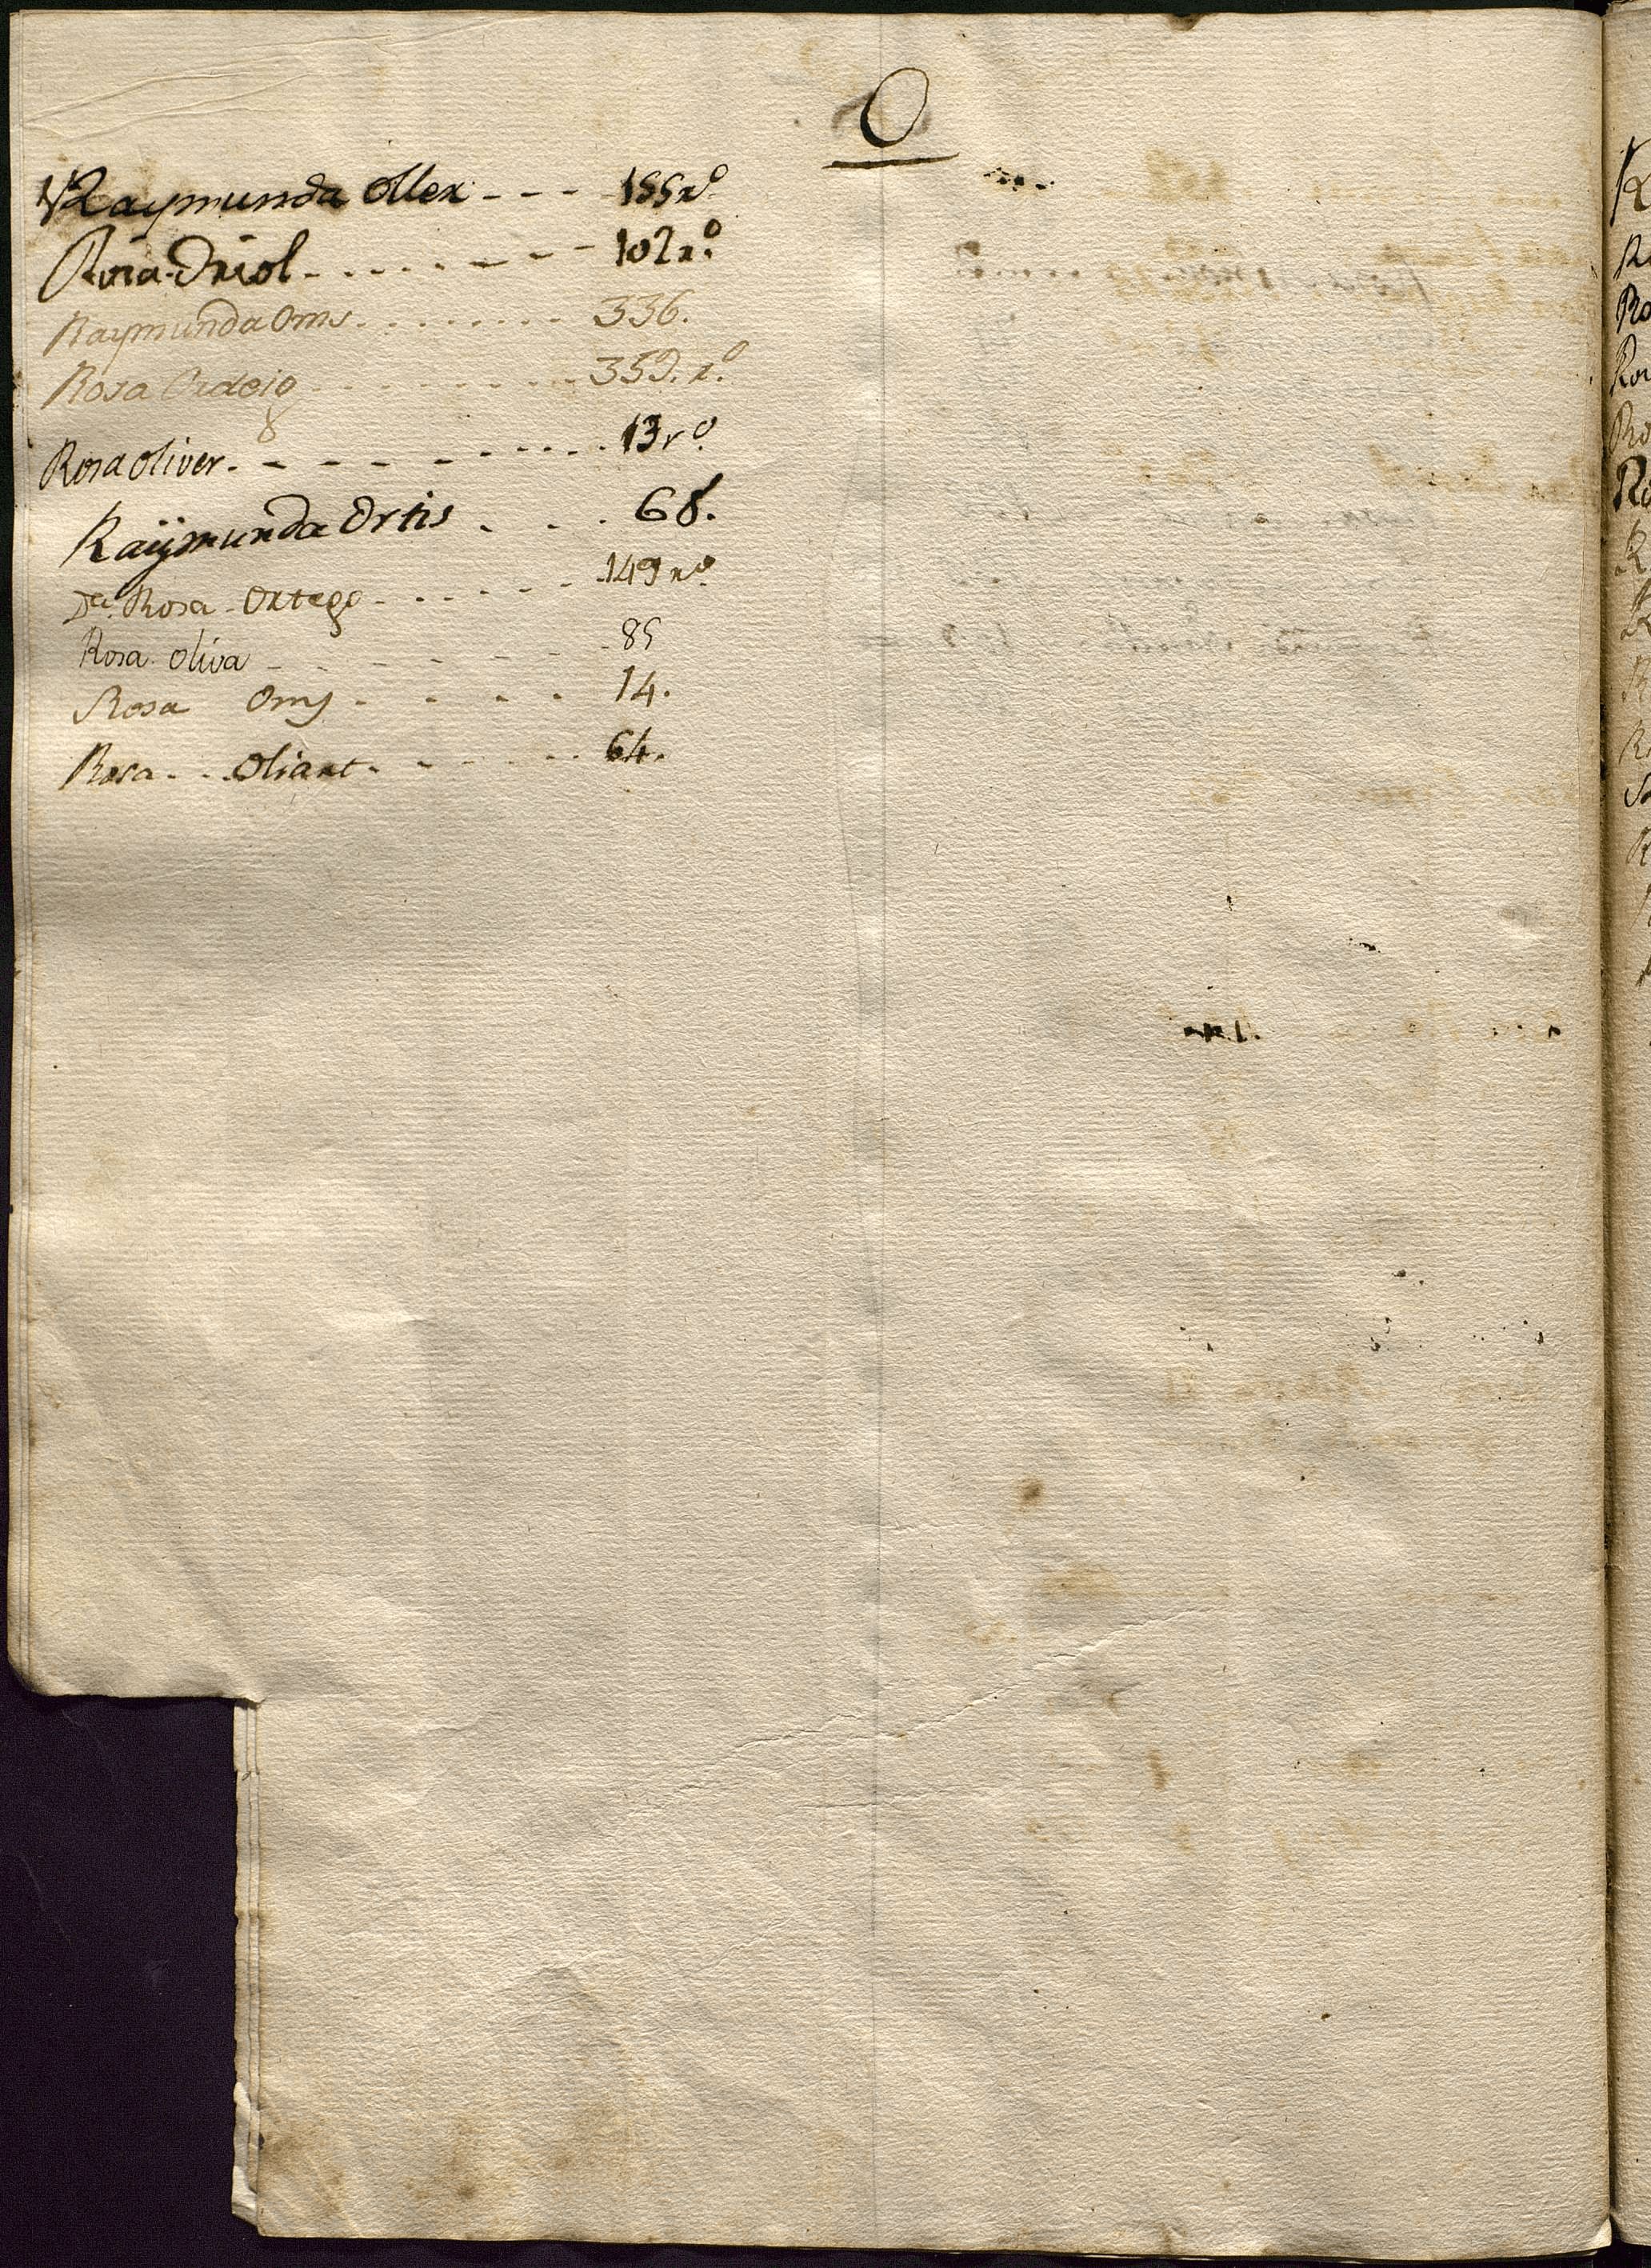 O
Raymunda Oller - - - 155 ro
Rosa Oriol - - - - - - - 102 ro
Raymunda Oms - - - - - - - 336.
Rosa Ordeig - - - - - - - 359. ro
Rosa Oliver - - - - - - - 13 ro
Raijmunda Ortis - - - 68.
Da. Rosa Ortego - - - - - - 149 ro
Rosa Oliva - - - - - - 85
Rosa Oms - - - - 14.
Rosa - - Oliart - - - - - 64.